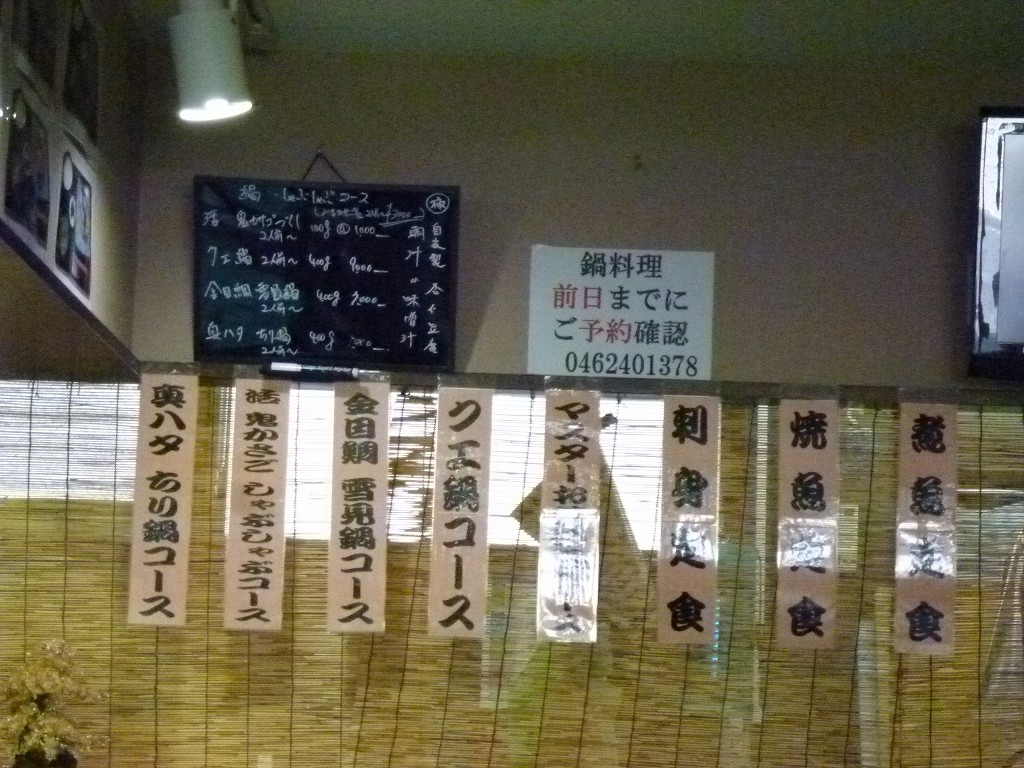 鍋 しゃぶしゃぶコース
活 鬼かさご
2人前〜
100g 1000
クエ鍋 2人前〜 400g 9000
金目鯛 雪見鍋
2人前〜
400g
真ハタ ちり鍋
2人前〜
400g
自家製
味噌汁
鍋料理
前日までに
ご予約確認
0462401378
真ハタ ちり鍋コース
活 鬼かさご しゃぶしゃぶコース
金目鯛 雪見鍋コース
クエ鍋コース
マスターお
刺身定食
焼魚定食
煮魚定食